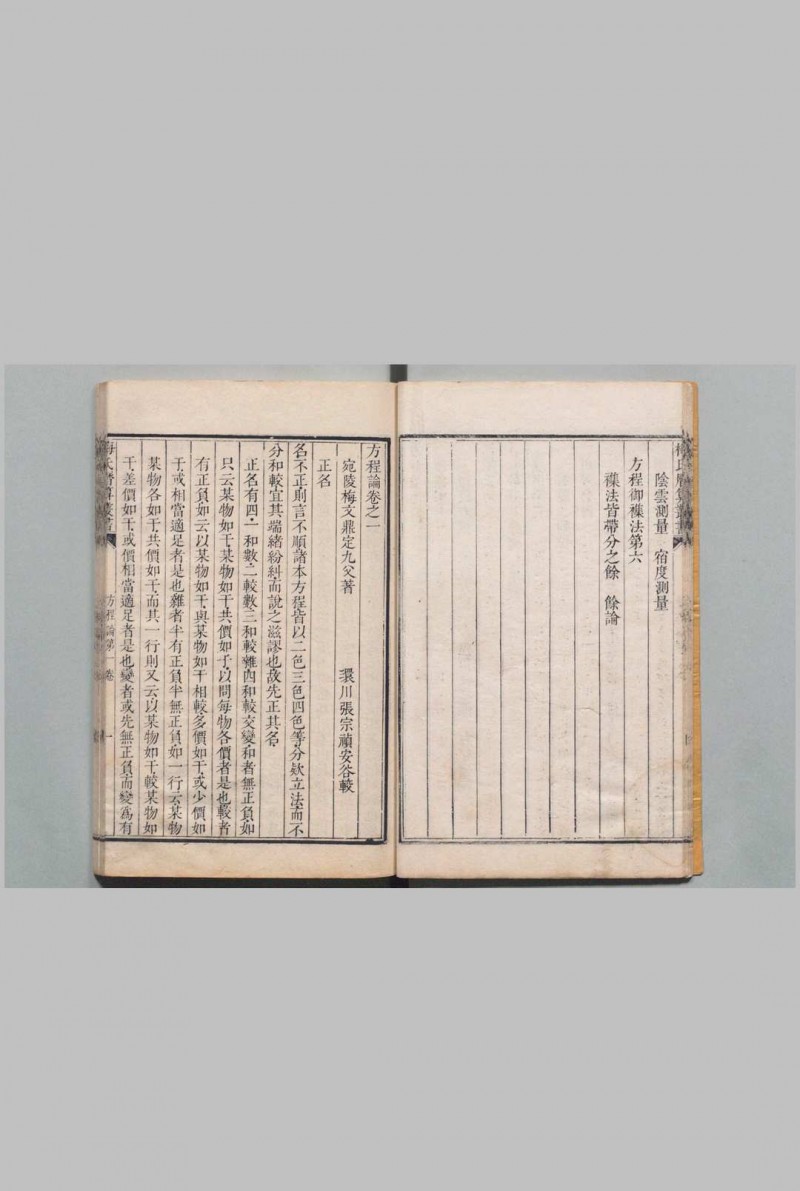 陰雲測量　宿度測量
方程御襍法第六
襍法皆帶分之餘　餘論
方程論卷之一
宛陵梅文鼎定九父著　環川張宗禎安谷較
正名
名不正則言不順諸本方程皆以二色三色四色等分欵立法而不
分和較宜其端緒紛糾而說之滋謬也故先正其名
正名有四一和數二較數三和較雜四和較交變和者無正負如
只云某物如干某物如干共價如干以問每物各價者是也較者
有正負如云以某物如干與某物如干相較多價如干或少價如
干或相當適足者是也雜者半有正負半無正負如一行云某物
某物各如干共價如干而其一行則又云以某物如干較某物如
干差價如干或價相當適足者是也變者或先無正負而變爲有
方程論第一卷　一